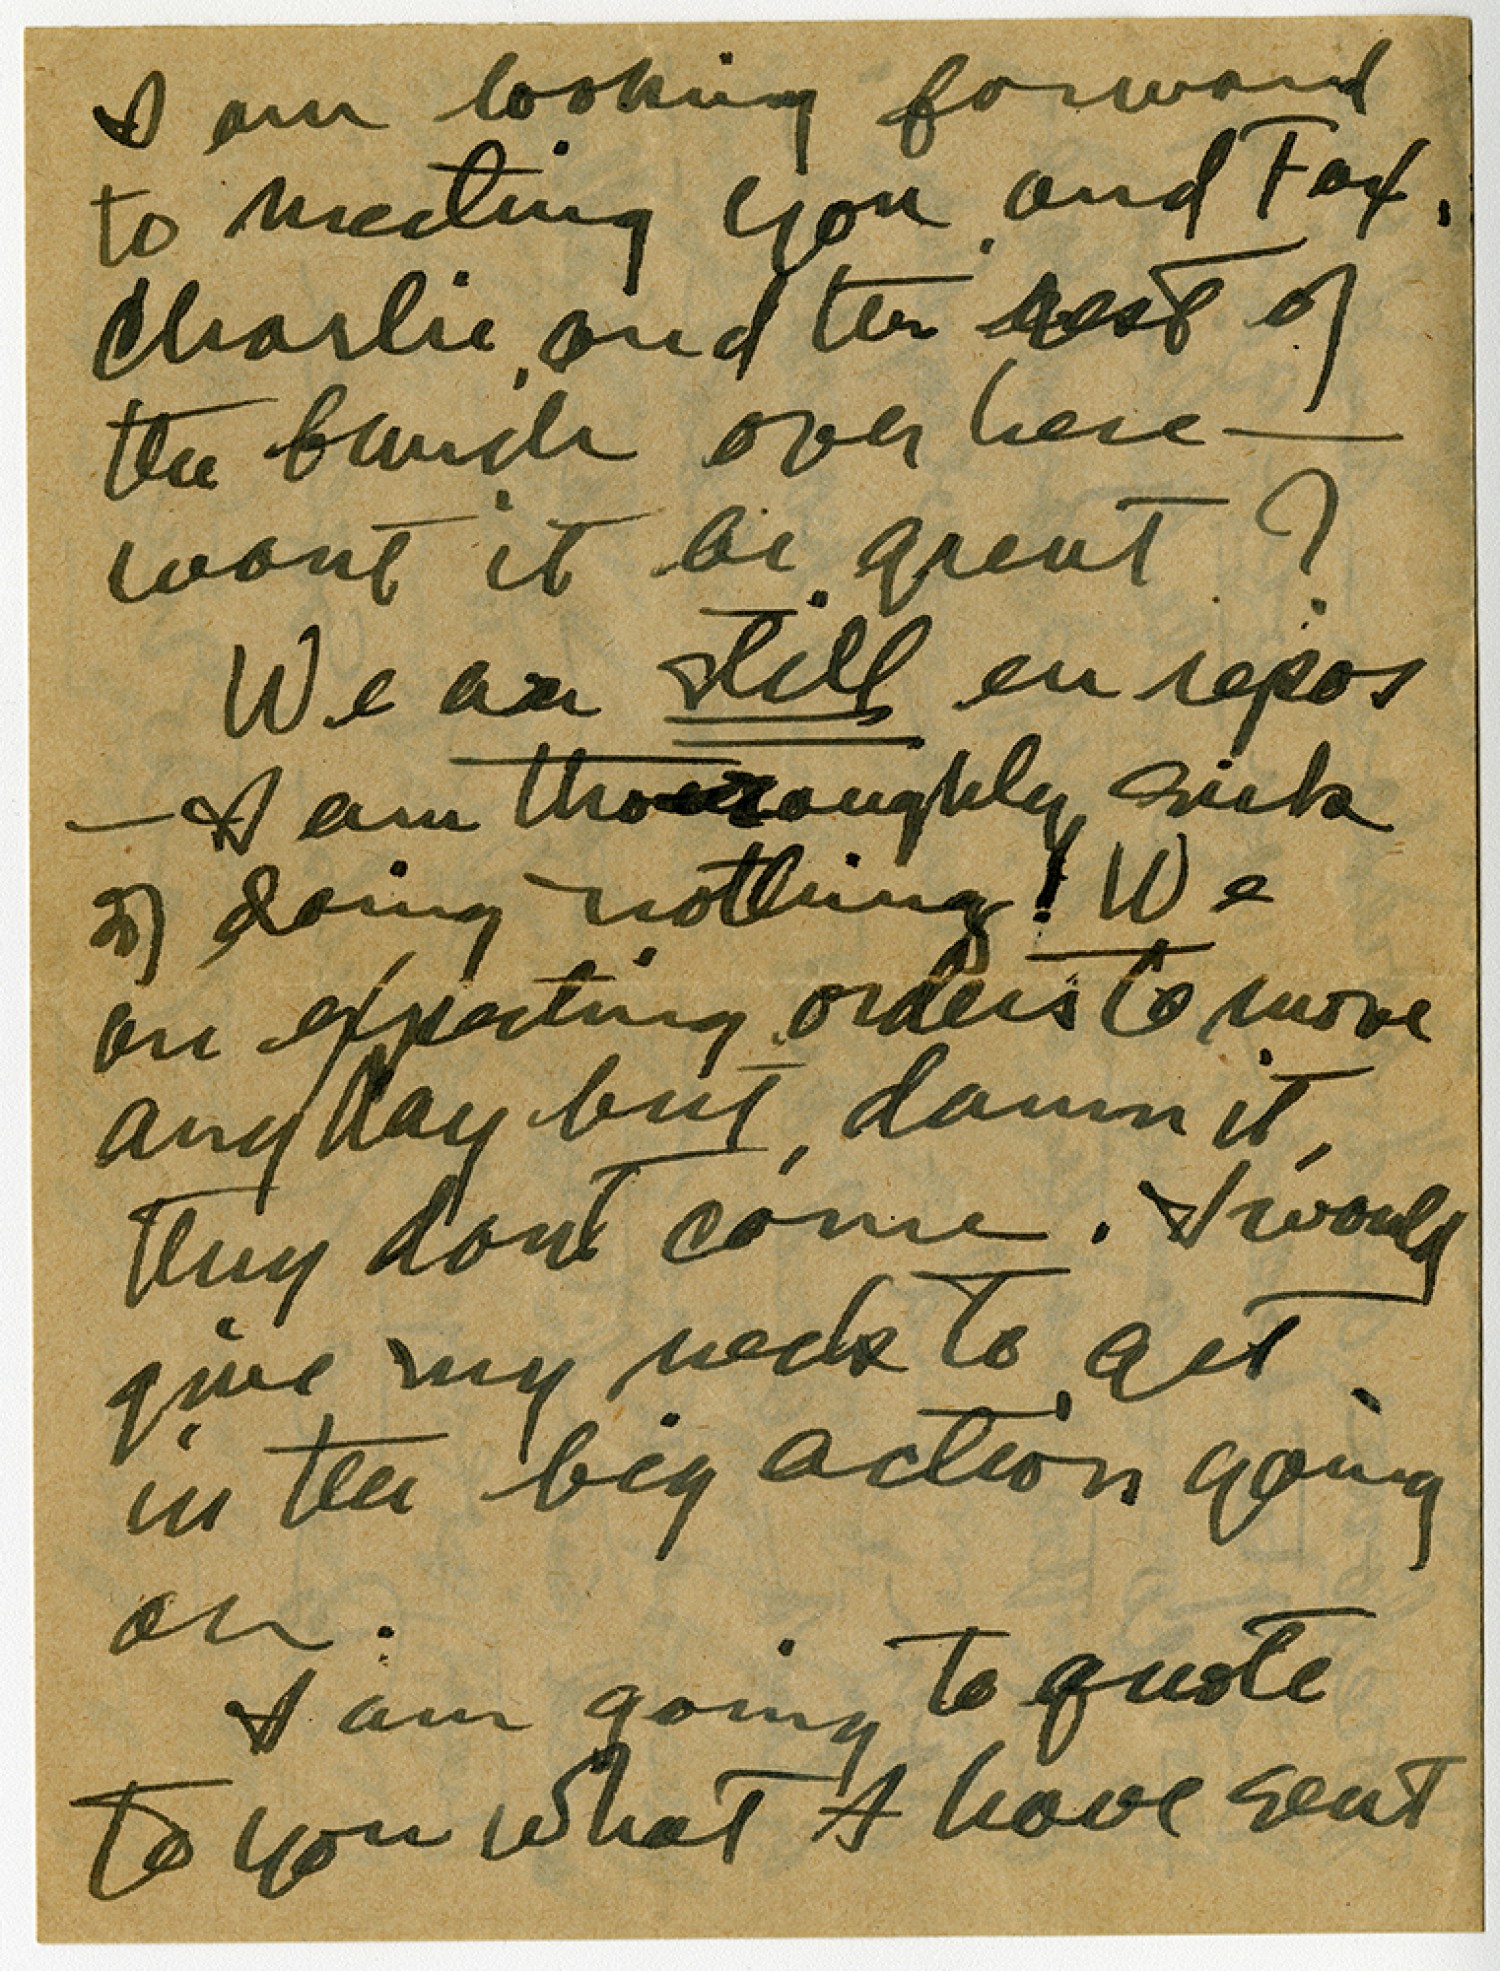 I am looking forward
to meeting you and Fox.
Charlie and the rest of
the bunch over here —
wont it be great?
We are still en repos
— I am thoroughly sick
of doing nothing! We
are expecting orders to move
any day but, damn it,
they dont come. I would
give my neck to get
in the big action going
on.
I am going to quote
to you what I have sent